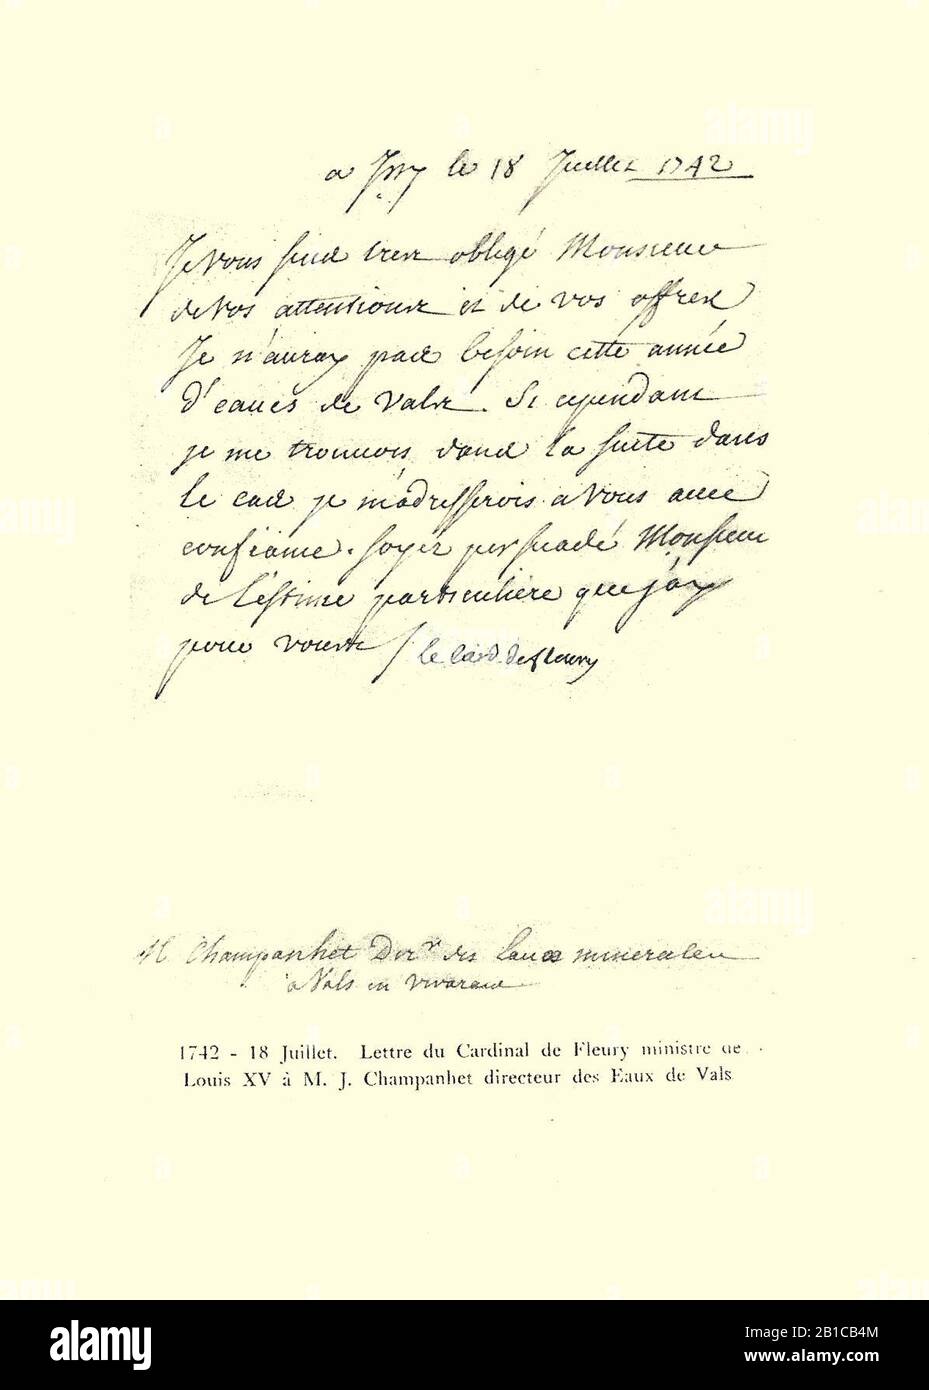 a Issy le 18 Juillet 1742
Je vous suis tres obligé Monsieur
de vos attentions et de vos offres
Je n'auray pas besoin cette année
d'eaues de Vals. Si cependant
je me trouvois dans la suite dans
le cas je m'adresserois a vous avec
confiance. soyez persuadé Monsieur
de l'estime particuliere que j'ay
pour vous / le card. de fleury
M Champanhet Dirr des Eaues minerales
a Vals en vivarais
1742 - 18 Juillet. Lettre du Cardinal de Fleury ministre de
Louis XV à M. J. Champanhet directeur des Eaux de Vals
alamy
Image ID: 2B1CB4M
www.alamy.com